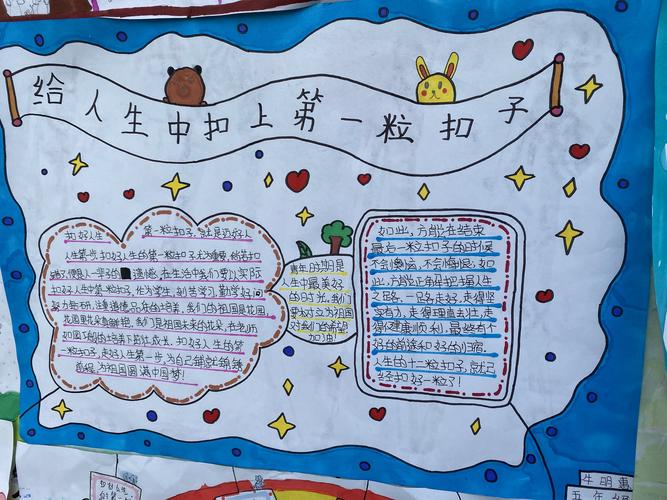 给人生中扣上第一粒扣子
扣好人生 第一粒扣子,就是迈好人
人生第一步,扣好人生的第一粒扣子尤为重要,倘若扣
错了,便是一辈子的 道德,在生活中我们要以实际
扣好人生中第一粒扣子,作为学生,刻苦学习,勤学好问
努力钻研,注重道德品质的培养,我们的祖国是花园,
花园里花朵真鲜艳,我们是祖国未来的花朵,在老师
如园丁般的培养下茁壮成长,扣好人生的第
一粒扣子,走好人生第一步,为自己铺就锦绣
前程,为祖国圆满中国梦!
青年时期是
人生中最美好
的时光,我们
要树立为祖国
对我们的希望
加油!
如此,方能在结束
最后一粒扣子的时候
不会懊恼,不会悔恨,如
此,方能正确把握人生
之路,一路走好,走得坚
实有力,走得理直气壮,走
得健康顺利,最终有个
好的前途和好的归宿。
人生的十二粒扣子,您就已
经扣好一粒了!
牛明
五年级